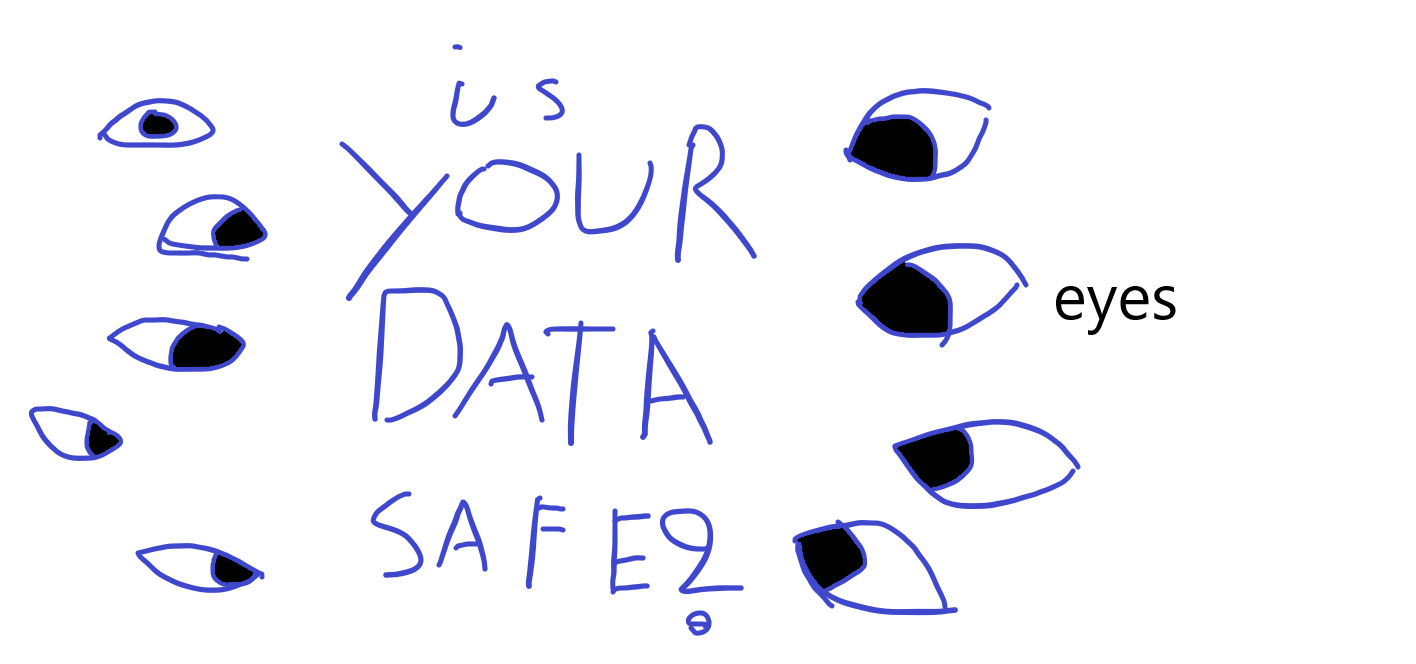 is
YOUR
DATA
SAFE?
eyes